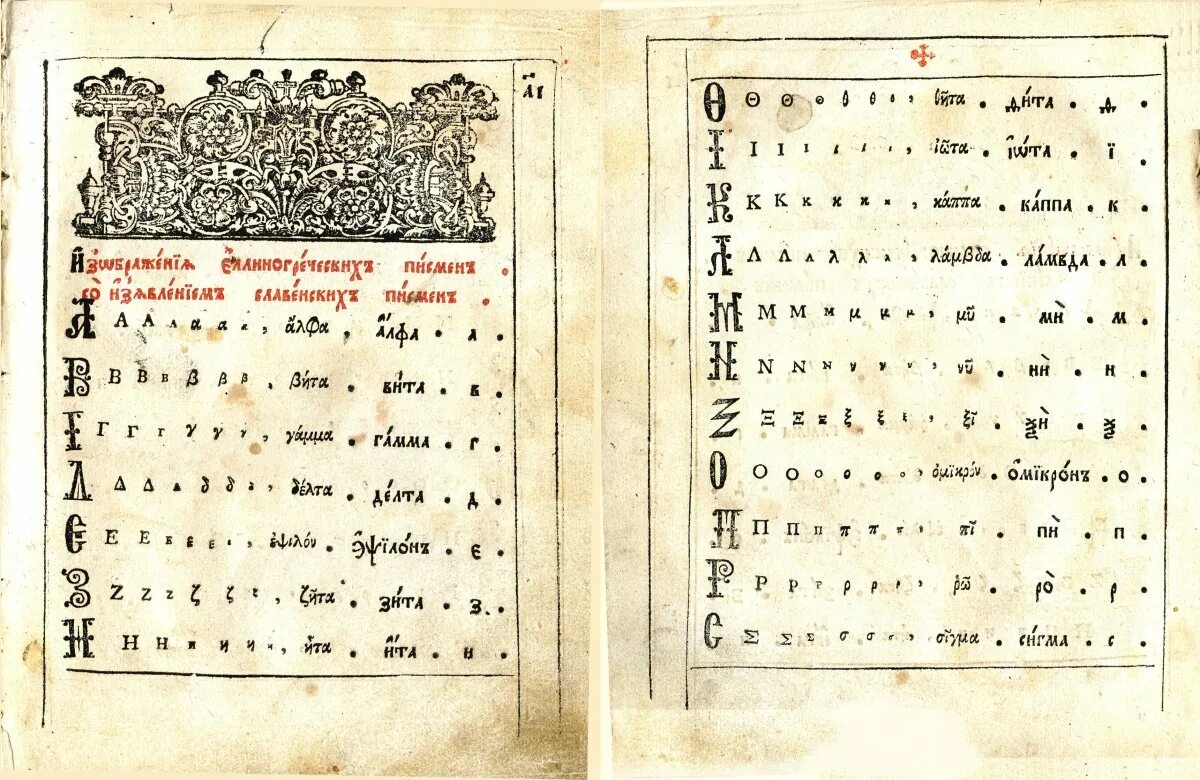 а҃і
Изѡбраже́нїѧ є҆́ллиногре́ческихъ пи́смен
со и҆з̾ѧвле́нїемъ славе́нскихъ пи́смен
А Α Α α α α α , ἄλφα , а҆́лфа . а .
В Β Β β β β β . βῆτα . ви́та . в .
Γ Γ Γ γ γ γ γ , γάμμα . га́мма . г .
Δ Δ Δ δ δ δ δ , δέλτα . де́лта . д .
Є Ε Ε ε ε ε ε , ἐψιλόν . э҆ѱїло́нъ . є .
З Ζ Ζ ζ ζ ζ ζ , ζῆτα . зи́та . з .
Н Η Η η η η η , ἦτα . и҆́та . и .
Θ Θ Θ θ θ θ θ , θῆτα . ѳи́та . ѳ .
І Ι Ι ι ι ι ι , ἰῶτα . і҆ѡ́та . ї .
К Κ Κ κ κ κ κ , κάππα . ка́ппа . к .
Λ Λ Λ λ λ λ λ , λάμβδα . ла́мвда . л .
М Μ Μ μ μ μ μ , μῦ . мѝ . м .
N Ν Ν ν ν ν ν , νῦ . нѝ . н .
Ξ Ξ Ξ ξ ξ ξ ξ , ξῖ . ѯѝ . ѯ .
О Ο Ο ο ο ο ο , ὀμικρόν . о҆мїкро́нъ . о .
П Π Π π π π π , πῖ . пѝ . п .
Р Ρ Ρ ρ ρ ρ ρ , ῥῶ . ро̀ . р .
С Σ Σ Σ σ σ σ , σῖγμα . си́гма . с .